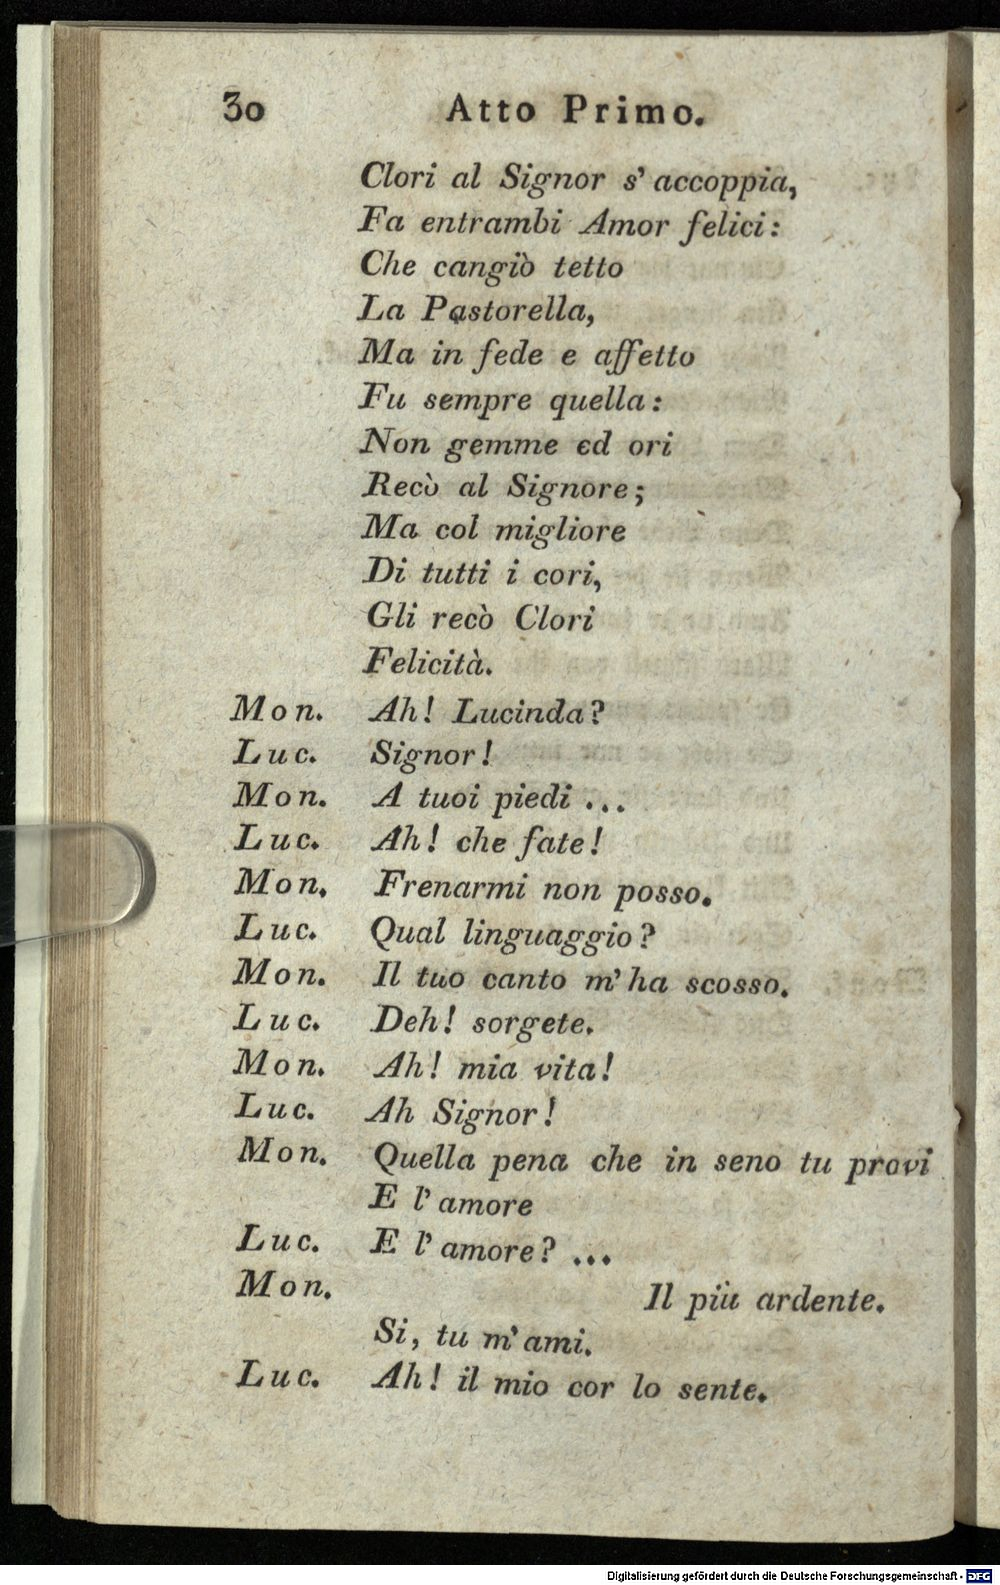 30 Atto Primo.
Clori al Signor s' accoppia,
Fa entrambi Amor felici:
Che cangiò tetto
La Pastorella,
Ma in fede e affetto
Fu sempre quella:
Non gemme ed ori
Recò al Signore;
Ma col migliore
Di tutti i cori,
Gli recò Clori
Felicità.
Mon. Ah! Lucinda?
Luc. Signor!
Mon. A tuoi piedi ...
Luc. Ah! che fate!
Mon. Frenarmi non posso.
Luc. Qual linguaggio?
Mon. Il tuo canto m' ha scosso.
Luc. Deh! sorgete.
Mon. Ah! mia vita!
Luc. Ah Signor!
Mon. Quella pena che in seno tu provi
E l' amore
Luc. E l' amore? ...
Mon. Il più ardente.
Si, tu m' ami.
Luc. Ah! il mio cor lo sente.
Digitalisierung gefördert durch die Deutsche Forschungsgemeinschaft - DFG